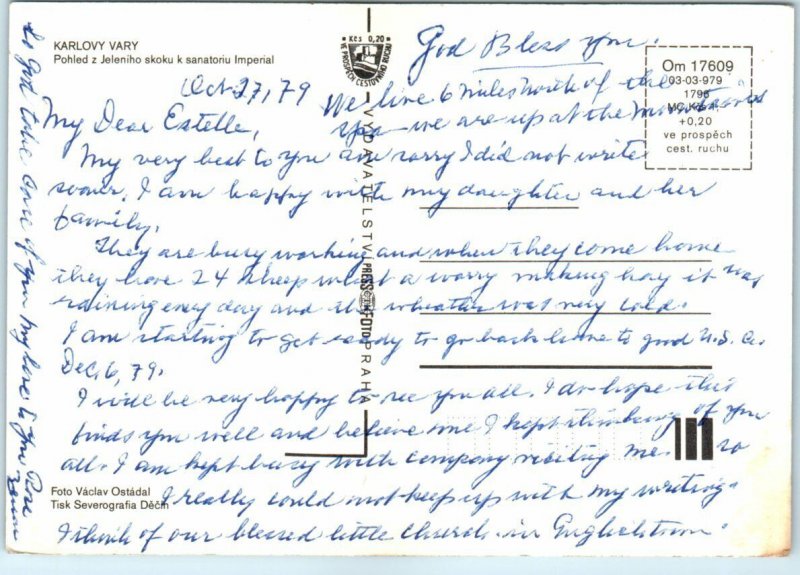 KARLOVY VARY
Pohled z Jeleního skoku k sanatoriu Imperial
Kčs 0,20
VE PROSPĚCH CESTOVNÍHO RUCHU
VYDAVATELSTVÍ PRESSFOTO PRAHA
Om 17609
03-03-979
1796
+0,20
ve prospěch
cest. ruchu
God Bless You.
Oct 27, 79
We live 6 miles north of the
we are up at the
My Dear Estelle,
My very best to you am sorry I did not write
sooner. I am happy with my daughter and her
family.
They are busy working and when they come home
they have 24 sheep what a worry making hay it was
raining every day and the weather was very cold.
I am starting to get ready to go back home to good U.S.A.
Dec. 6, 79.
I will be very happy to see you all. I do hope this
finds you well and believe me I kept thinking of you
all. I am kept busy with company visiting me. so
I really could not keep up with my writing.
I think of our blessed little church in Englishtown
Foto Václav Ostádal
Tisk Severografia Děčín
God take care of you my love to you